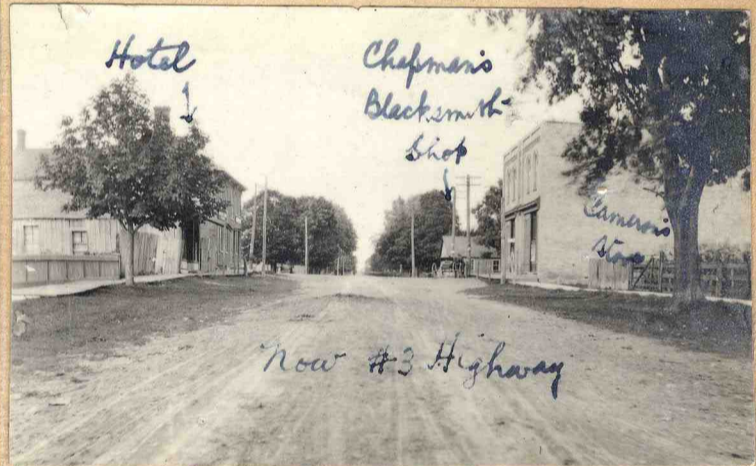 Hotel
Chapman's
Blacksmith
Shop
Cameron's
Store
Now #3 Highway